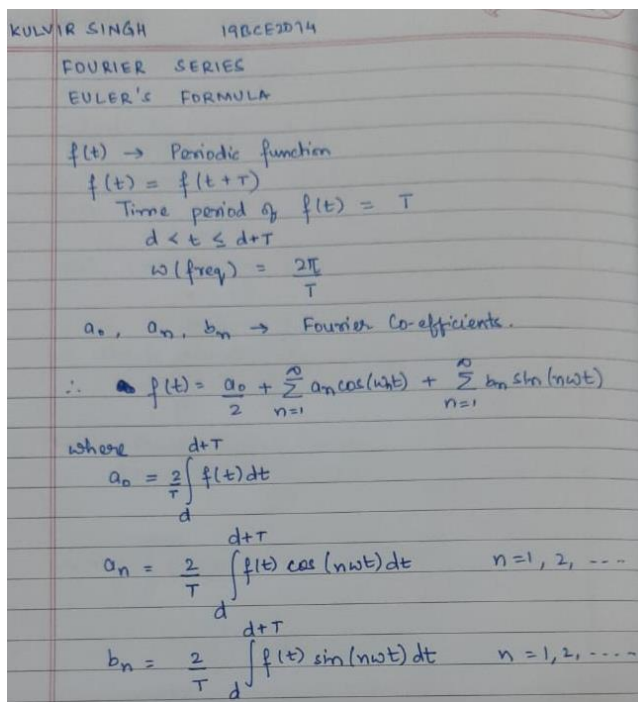 KULVIR SINGH 19BCE2074
FOURIER SERIES
EULER'S FORMULA
f(t) → Periodic function
f(t) = f(t+T)
Time period of f(t) = T
d < t ≤ d+T
w(freq) = 2π/T
a₀, aₙ, bₙ → Fourier Co-efficients.
∴ f(t) = a₀/2 + ∞Σn=1 aₙcos(wnt) + ∞Σn=1 bₙ sin(nwt)
where
a₀ = 2/T ∫_d^{d+T} f(t)dt
aₙ = 2/T ∫_d^{d+T} f(t) cos(nwt)dt n=1, 2, ----
bₙ = 2/T ∫_d^{d+T} f(t) sin(nwt)dt n=1,2, -----